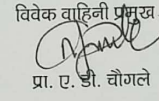 विवेक वाहिनी प्रमुख
प्रा. ए. डी. चौगले